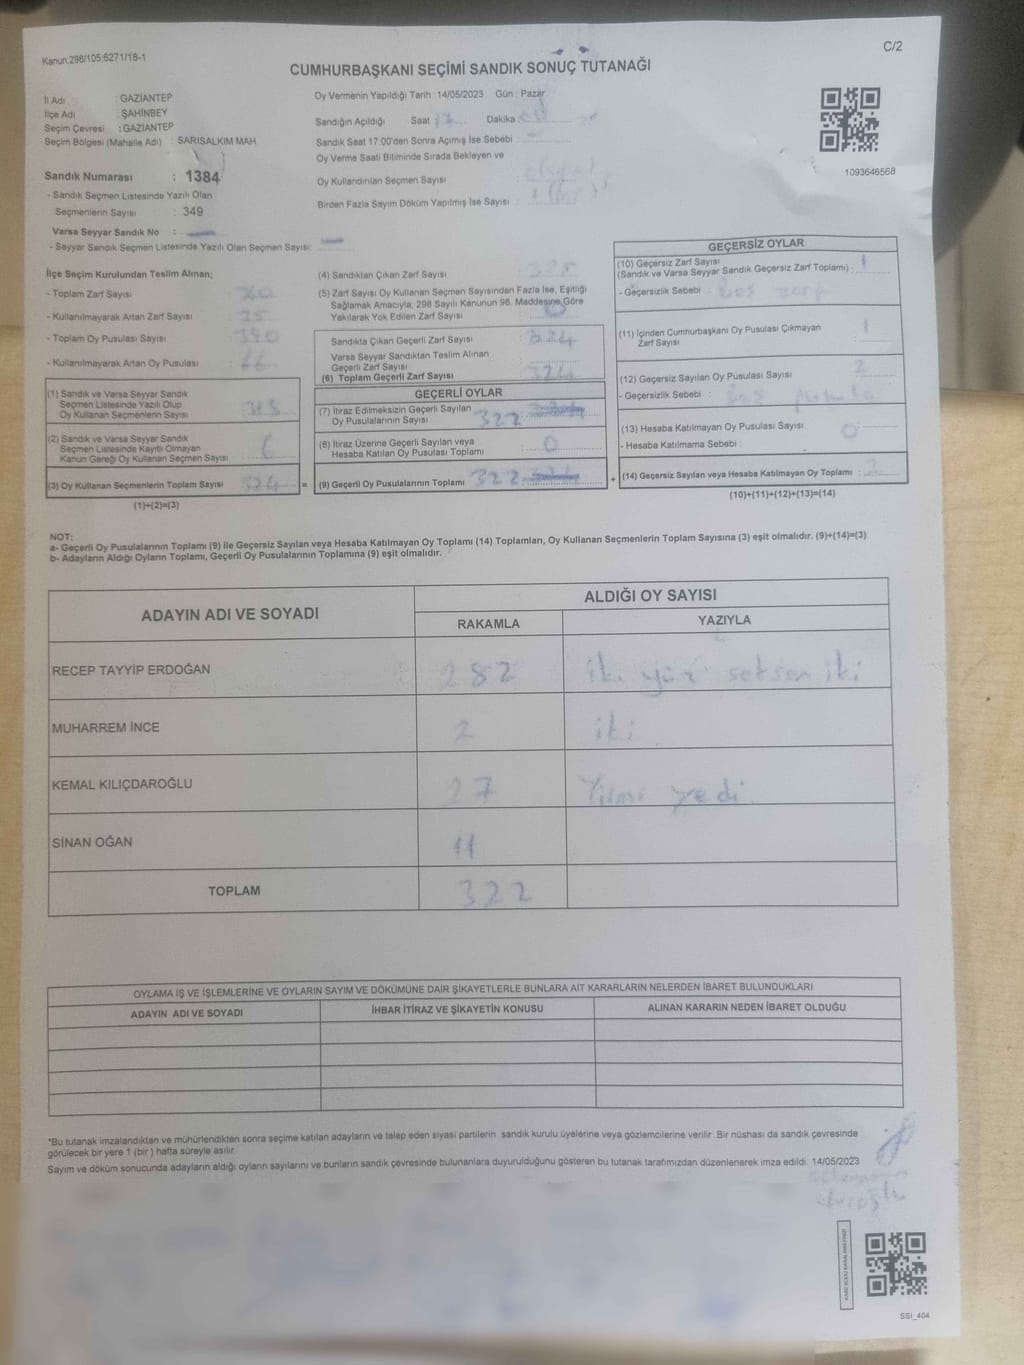 Kanun.298/105;6271/18-1
C/2
CUMHURBAŞKANI SEÇİMİ SANDIK SONUÇ TUTANAĞI
İl Adı : GAZİANTEP
İlçe Adı : ŞAHİNBEY
Seçim Çevresi : GAZİANTEP
Seçim Bölgesi (Mahalle Adı) SARISALKIM MAH
Sandık Numarası : 1384
- Sandık Seçmen Listesinde Yazılı Olan
Seçmenlerin Sayısı : 349
Varsa Seyyar Sandık No :
- Seyyar Sandık Seçmen Listesinde Yazılı Olan Seçmen Sayısı:
Oy Vermenin Yapıldığı Tarih :14/05/2023 Gün : Pazar
Sandığın Açıldığı Saat 17 Dakika
Sandık Saat 17:00'den Sonra Açımış İse Sebebi :
Oy Verme Saati Bitiminde Sırada Bekleyen ve
Oy Kullandırılan Seçmen Sayısı :
Birden Fazla Sayım Döküm Yapılmış İse Sayısı :
1093646568
İlçe Seçim Kurulundan Teslim Alınan;
- Toplam Zarf Sayısı :
- Kullanılmayarak Artan Zarf Sayısı : 35
- Toplam Oy Pusulası Sayısı : 390
- Kullanılmayarak Artan Oy Pusulası : 66
(1) Sandık ve Varsa Seyyar Sandık
Seçmen Listesinde Yazılı Olup
Oy Kullanan Seçmenlerin Sayısı :
(2) Sandık ve Varsa Seyyar Sandık
Seçmen Listesinde Kayıtlı Olmayan
Kanun Gereği Oy Kullanan Seçmen Sayısı : 6
(3) Oy Kullanan Seçmenlerin Toplam Sayısı : 324
(1)+(2)=(3)
=
(4) Sandıktan Çıkan Zarf Sayısı : 325
(5) Zarf Sayısı Oy Kullanan Seçmen Sayısından Fazla İse, Eşitliği
Sağlamak Amacıyla, 298 Sayılı Kanunun 98. Maddesine Göre
Yakılarak Yok Edilen Zarf Sayısı : 0
Sandıkta Çıkan Geçerli Zarf Sayısı : 324
Varsa Seyyar Sandıktan Teslim Alınan
Geçerli Zarf Sayısı :
(6) Toplam Geçerli Zarf Sayısı : 324
GEÇERLİ OYLAR
(7) İtiraz Edilmeksizin Geçerli Sayılan
Oy Pusulalarının Sayısı : 322
(8) İtiraz Üzerine Geçerli Sayılan veya
Hesaba Katılan Oy Pusulası Toplamı : 0
(9) Geçerli Oy Pusulalarının Toplamı : 322
+
GEÇERSİZ OYLAR
(10) Geçersiz Zarf Sayısı
(Sandık ve Varsa Seyyar Sandık Geçersiz Zarf Toplamı) : 1
- Geçersizlik Sebebi : boş zarf
(11) İçinden Cumhurbaşkanı Oy Pusulası Çıkmayan
Zarf Sayısı : 1
(12) Geçersiz Sayılan Oy Pusulası Sayısı : 2
- Geçersizlik Sebebi : boş pusula
(13) Hesaba Katılmayan Oy Pusulası Sayısı : 0
- Hesaba Katılmama Sebebi :
(14) Geçersiz Sayılan veya Hesaba Katılmayan Oy Toplamı : 2
(10)+(11)+(12)+(13)=(14)
NOT:
a- Geçerli Oy Pusulalarının Toplamı (9) ile Geçersiz Sayılan veya Hesaba Katılmayan Oy Toplamı (14) Toplamları, Oy Kullanan Seçmenlerin Toplam Sayısına (3) eşit olmalıdır. (9)+(14)=(3)
b- Adayların Aldığı Oyların Toplamı, Geçerli Oy Pusulalarının Toplamına (9) eşit olmalıdır.
ADAYIN ADI VE SOYADI
ALDIĞI OY SAYISI
RAKAMLA YAZIYLA
RECEP TAYYİP ERDOĞAN 282 iki yüz seksen iki
MUHARREM İNCE 2 iki
KEMAL KILIÇDAROĞLU 27 Yirmi yedi
SİNAN OĞAN 11
TOPLAM 322
OYLAMA İŞ VE İŞLEMLERİNE VE OYLARIN SAYIM VE DÖKÜMÜNE DAİR ŞİKAYETLERLE BUNLARA AİT KARARLARIN NELERDEN İBARET BULUNDUKLARI
ADAYIN ADI VE SOYADI İHBAR İTİRAZ VE ŞİKAYETİN KONUSU ALINAN KARARIN NEDEN İBARET OLDUĞU
*Bu tutanak imzalandıktan ve mühürlendikten sonra seçime katılan adayların ve talep eden siyasi partilerin sandık kurulu üyelerine veya gözlemcilerine verilir .Bir nüshası da sandık çevresinde
görülecek bir yere 1 (bir ) hafta süreyle asılır.
Sayım ve döküm sonucunda adayların aldığı oyların sayılarını ve bunların sandık çevresinde bulunanlara duyurulduğunu gösteren bu tutanak tarafımızdan düzenlenerek imza edildi. 14/05/2023
SSİ_404